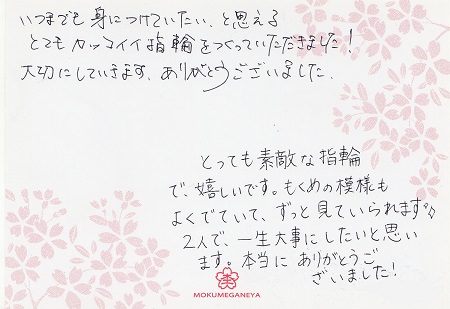 いつまでも身につけていたい、と思える
とてもカッコイイ指輪をつくっていただきました!
大切にしていきます。ありがとうございました。
とっても素敵な指輪
で、嬉しいです。もくめの模様も
よくでていて、ずっと見ていられます♪
2人で、一生大事にしたいと思い
ます。本当にありがとうご
ざいました!
MOKUMEGANEYA